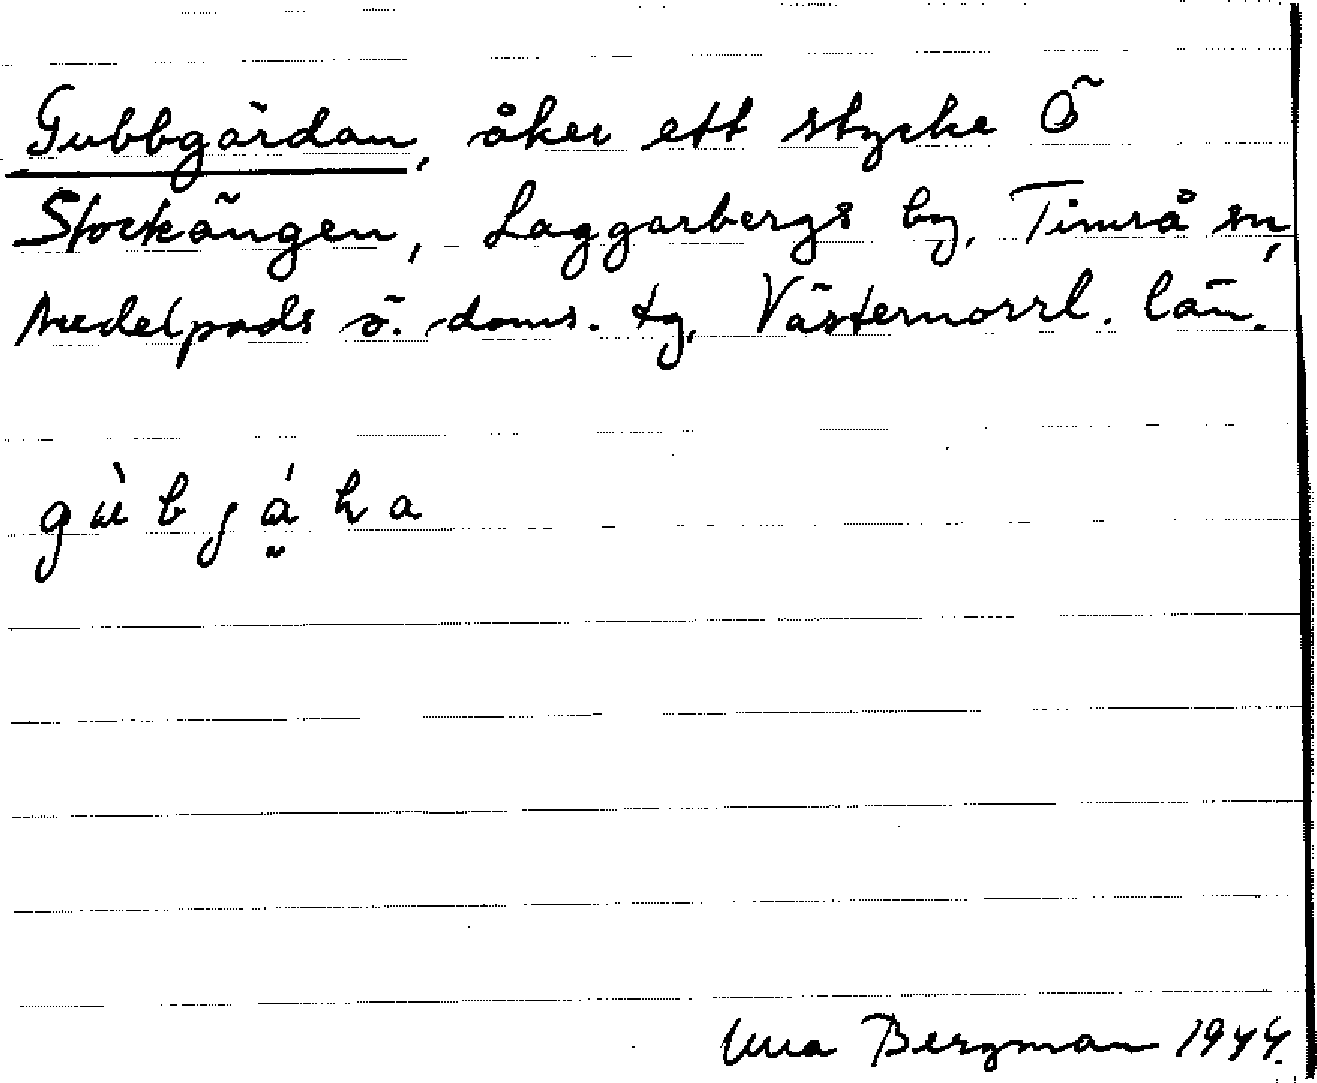 Gubbgärdan, åker ett stycke Ö
Stockängen, Laggarbergs by, Timrå sn,
Medelpads ö. doms. tg, Västernorrl. län.
Bergman 1944.